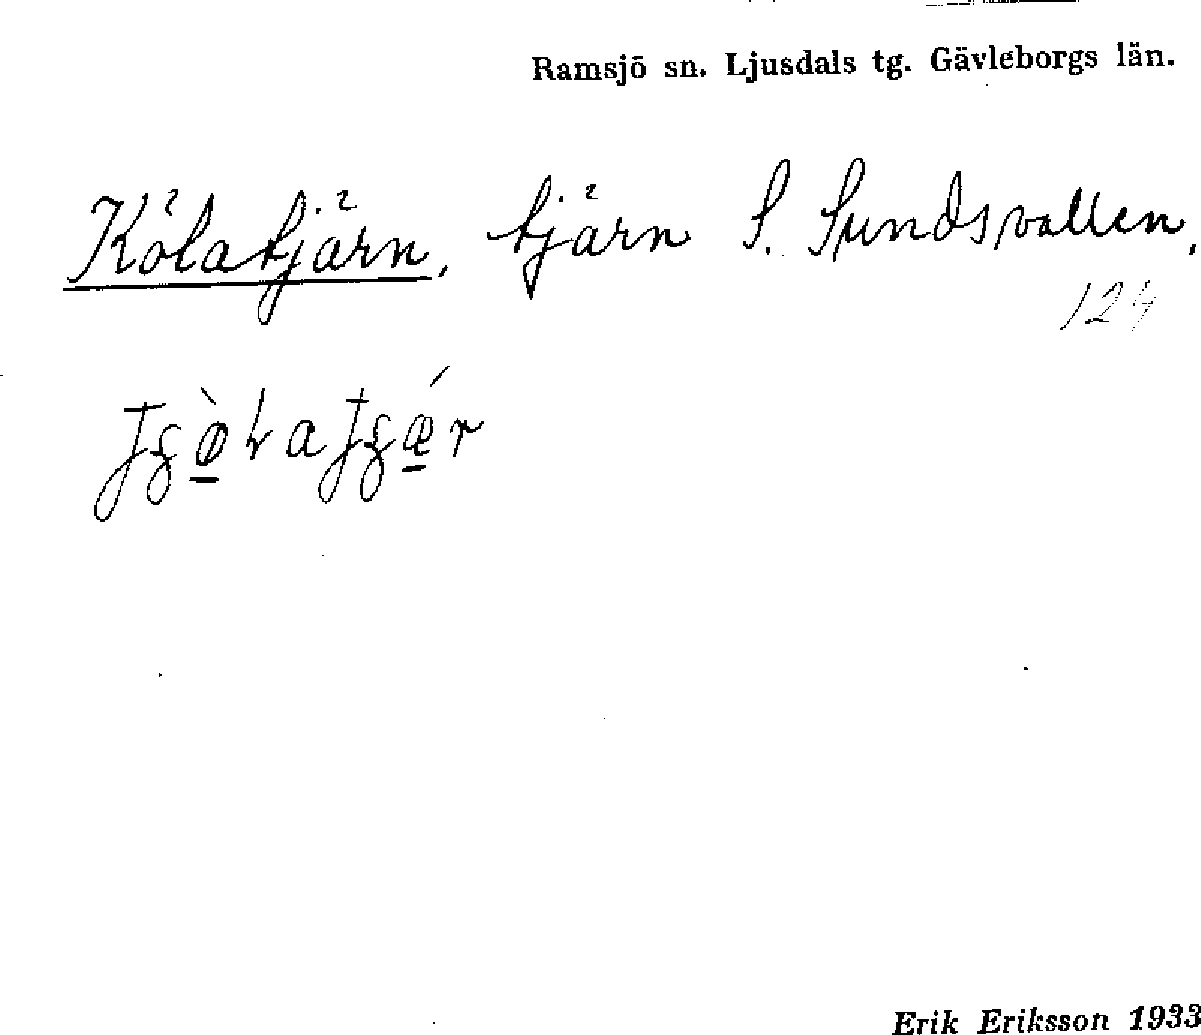 Ramsjö sn. Ljusdals tg. Gävleborgs län.
Kölatjärn, tjärn S. Sundsvallen,
124
Erik Eriksson 1933